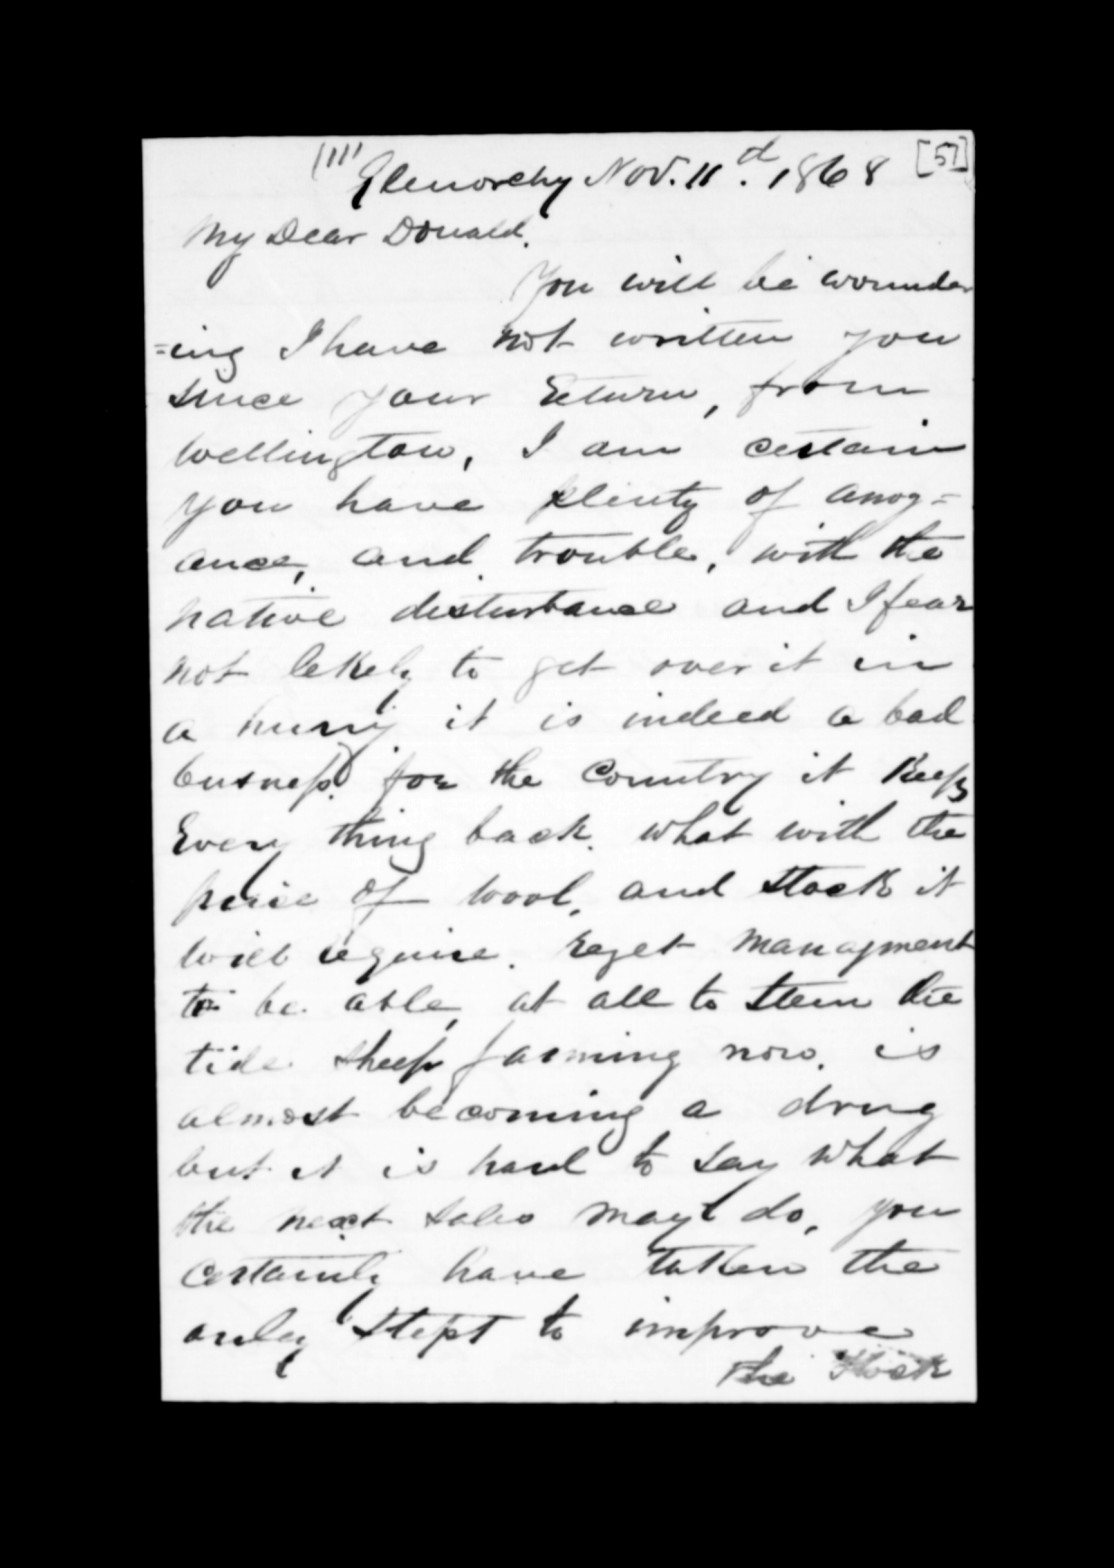 Glenorchy Nov. 11.d 1868 [57]
My Dear Donald.
You will be wounder
=ing I have not written you
since your Return, from
Wellington, I am certain
you have plenty of anoy=
ance, and trouble, with the
native disturbance and I fear
not likely to get over it in
a hurry it is indeed a bad
busness for the Country it Keeps
Every thing back. what with the
price of wool, and stock it
will require. managment
to be able, at all to stem the
tide sheep farming now. is
almost becoming a drug
but it is hard to say what
the next sales may do, you
certainly have taken the
only stept to improve
the Flock